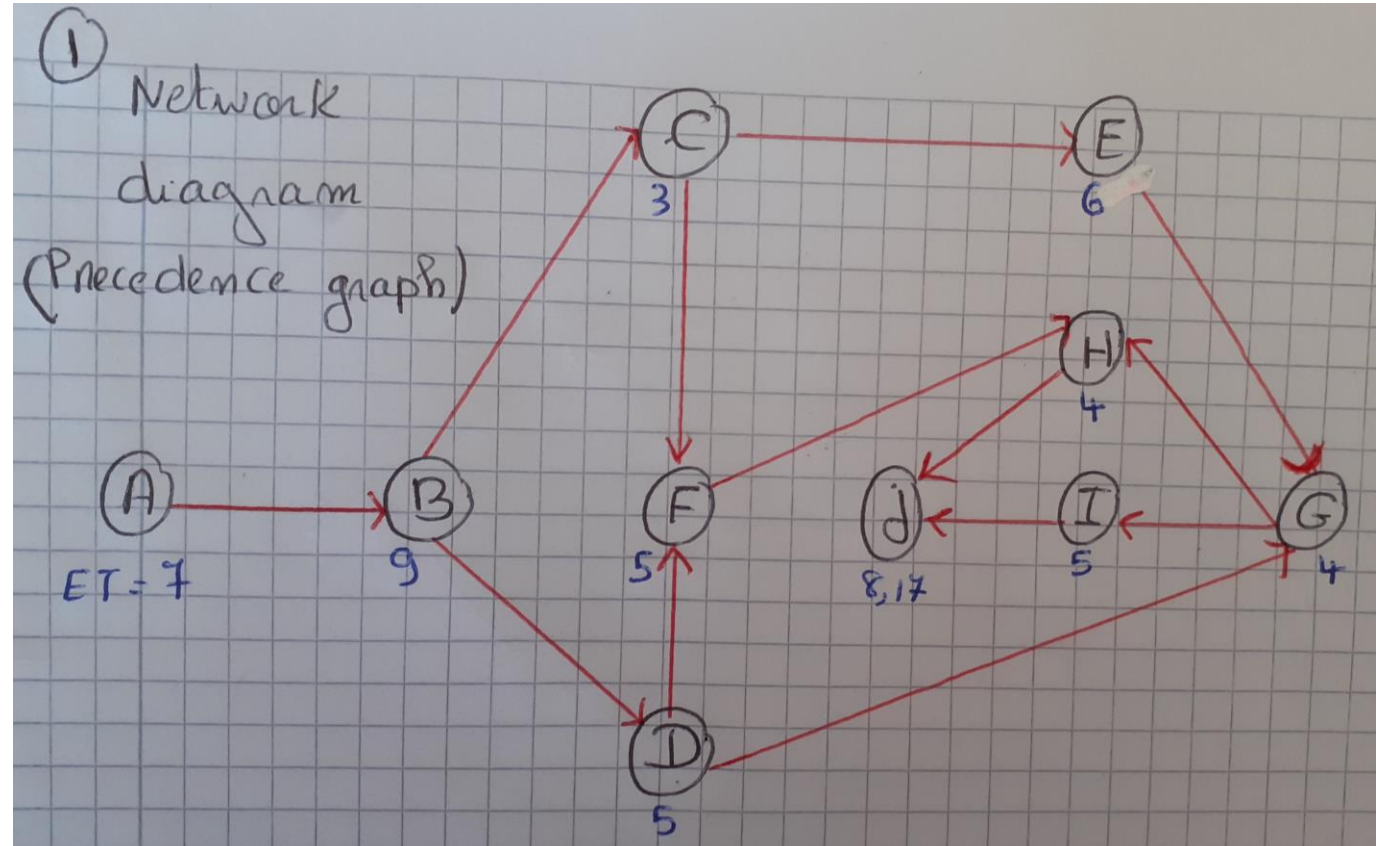 1
Network
diagram
(Precedence graph)
C
3
E
6
H
4
A
ET = 7
B
9
F
5
j
8,17
I
5
G
4
D
5